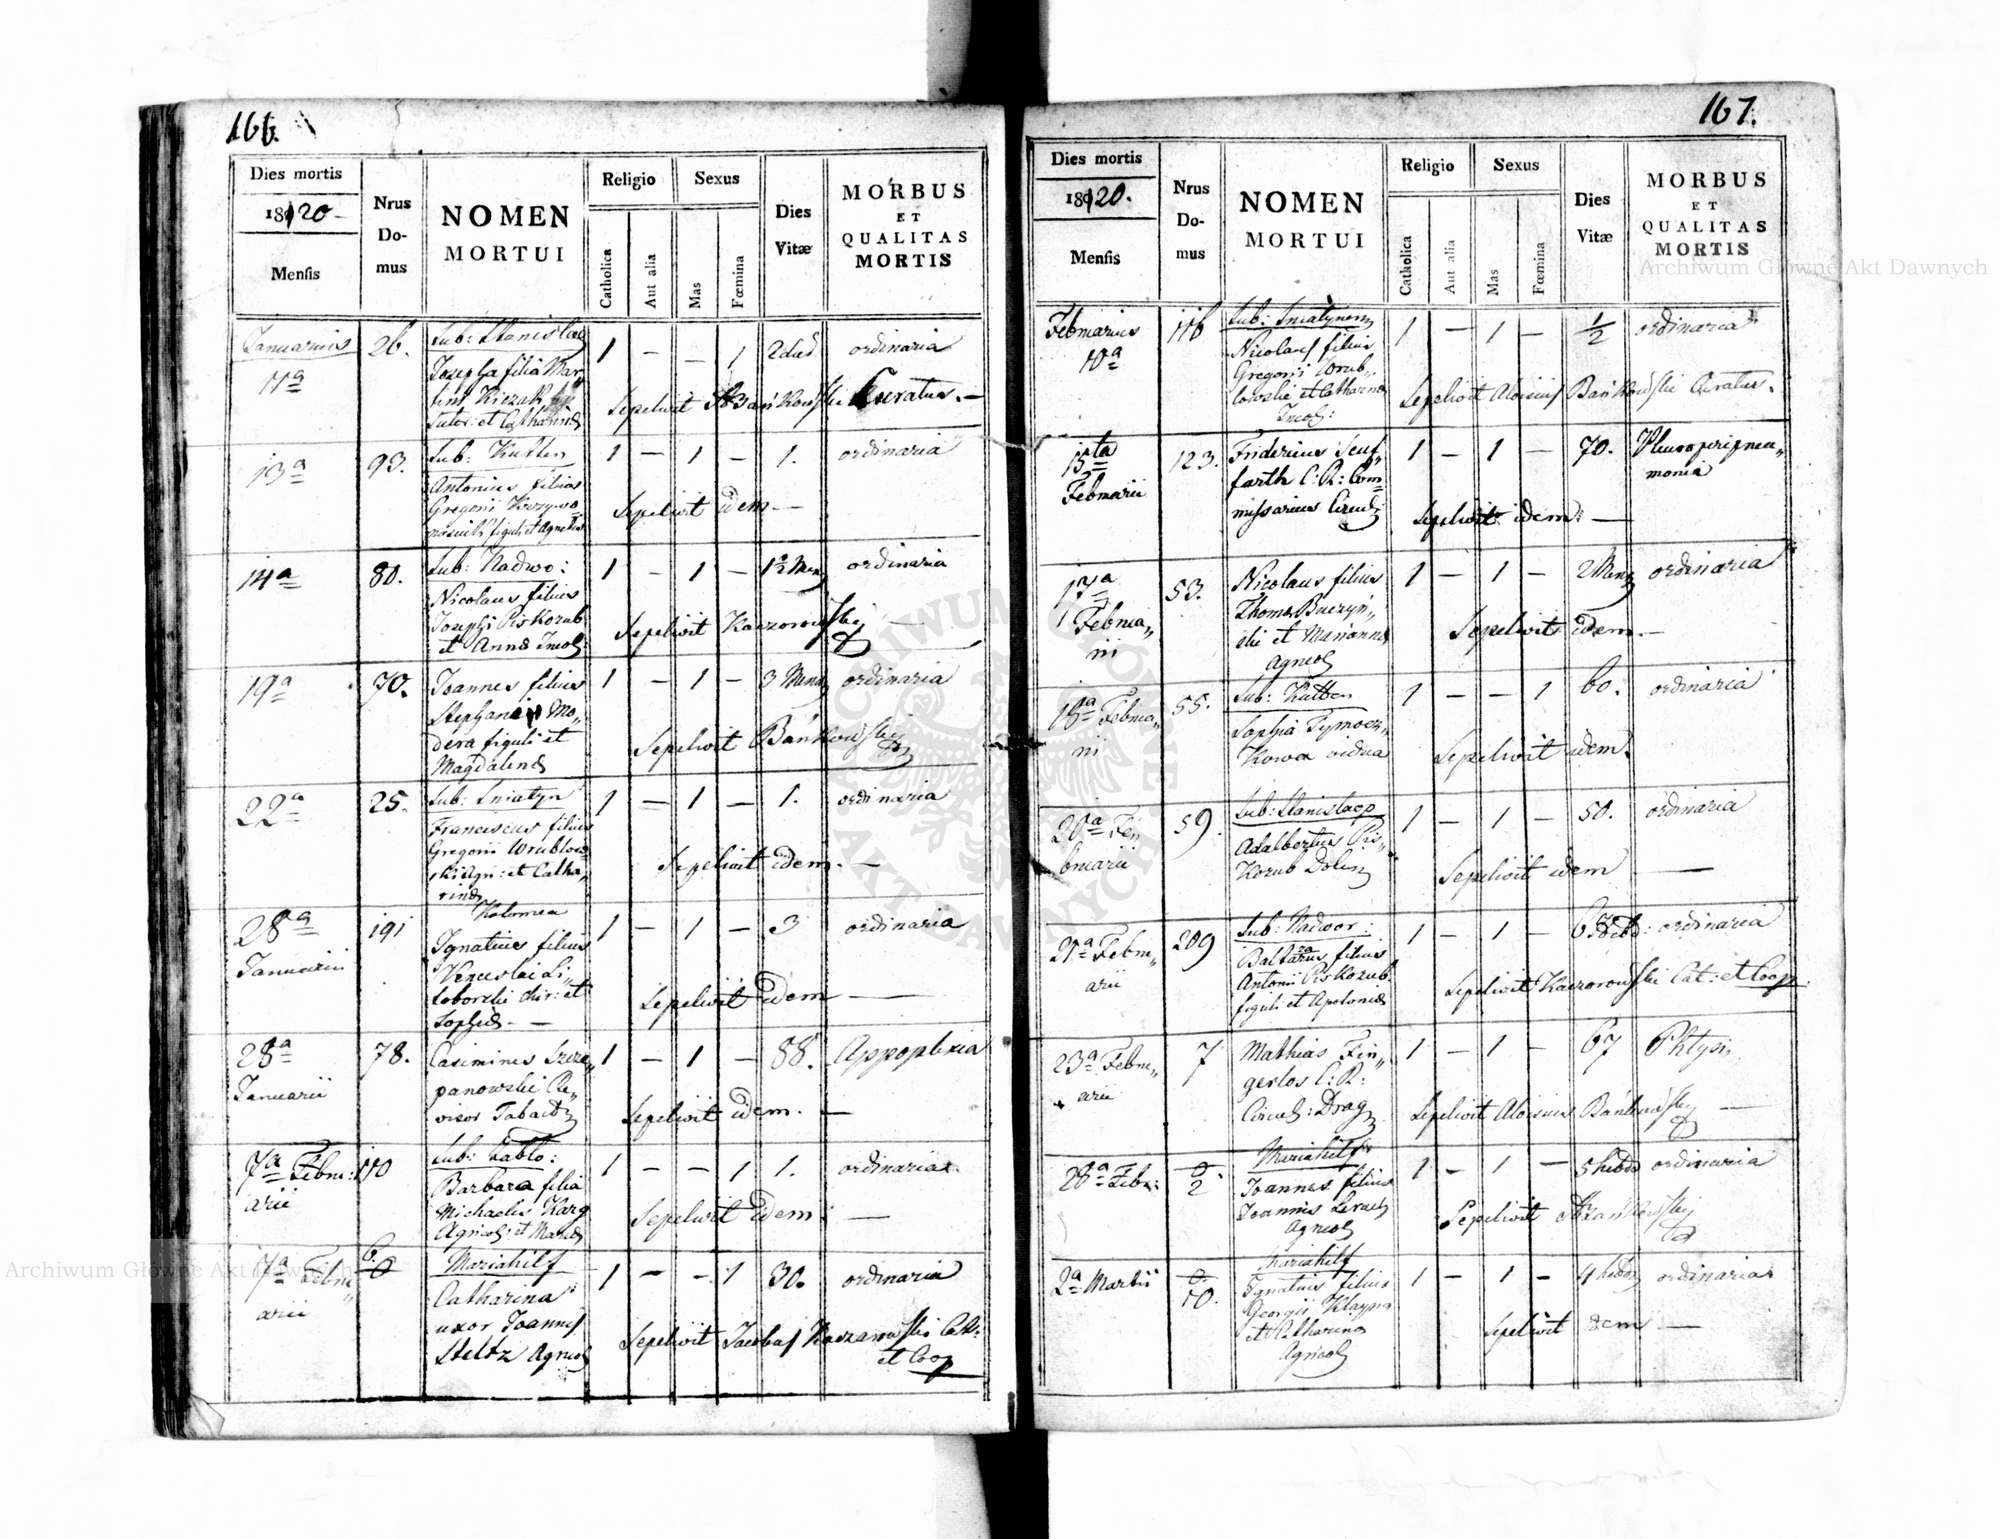 166.
Dies mortis
1820
Mensis
Nrus
Do-
mus
NOMEN
MORTUI
Religio
Catholica
Aut alia
Sexus
Mas
Fœmina
Dies
Vitæ
MORBUS
ET
QUALITAS
MORTIS
Januarius
11a
26.
Sub: Stanislao
Josepha filia Mar„
tini Kiczak
Sutor: et Catharinæ
1 — — 1
ordinaria
Sepelivit Bańkowski Curatus. —
13a
93.
Sub: Kutten
Antonius filius
Gregorii
figuli et Agnetis
1 — 1 — 1.
ordinaria
Sepelivit idem —
14a
80.
Sub: Nadwo:
Nicolaus filius
Josephi Piskozub
et Annæ Incol:
1 — 1 — 1½ Men
ordinaria
Sepelivit Kaczorowski
19a
70.
Joannes filius
Stephani Mo„
dera figuli et
Magdalenæ
1 — 1 — 3 Mens
ordinaria
Sepelivit Bańkowski
22a
25.
Sub: Sniatyn
Franciscus filius
Gregorii Wrublow„
ski Agri: et Catha„
rinæ
1 — 1 — 1.
ordinaria
Sepelivit idem. —
28a
Januarii
191
Kolomea
Ignatius filius
Venceslai Li„
et
Sophiæ —
1 — 1 — 3
ordinaria
Sepelivit idem —
28a
Januarii
78.
Casimirus Szcze„
panowski Re„
visor Tabac
1 — 1 — 88.
Appoplexia
Sepelivit idem. —
7a Febru:
arii
110
Sub: Zablo:
Barbara filia
Michaelis Karg
Agricol: et Mariæ
1 — — 1 1.
ordinaria
Sepelivit idem —
7a Febru„
arii
6.
0
Mariahilf
Catharina
uxor Joannis
Steltz Agricol
1 — — 1 30.
ordinaria
Sepelivit Jacobus Kaczorowski Cat:
et Coop
167.
Dies mortis
1820.
Mensis
Nrus
Do-
mus
NOMEN
MORTUI
Religio
Catholica
Aut alia
Sexus
Mas
Fœmina
Dies
Vitæ
MORBUS
ET
QUALITAS
MORTIS
Februarius
10a
116
Sub: Sniatynem
Nicolaus filius
Gregorii Wrub„
lowski et Catharinæ
Incol:
1 — 1 — 1/2
ordinaria
Sepelivit Aloisius Bańkowski Curatus.
15ta
Februarii
123.
Fridericus Seuf„
farth C: R: Com„
missarius Circul
1 — 1 — 70.
Pleuroperipneu„
monia
Sepelivit idem: —
17a
Februa„
rii
53.
Nicolaus filius
Thomæ Buczyń„
ski et Mariannæ
Agricol
1 — 1 — 2 Mens
ordinaria
Sepelivit idem —
18a Februa„
rii
55.
Sub: Kutten
Sophia Tymocz„
kowa vidua
1 — — 1 60.
ordinaria
Sepelivit idem.
20a Fe„
bruarii
59.
Sub: Stanislao
Adalbertus Pis„
kozub
1 — 1 — 50.
ordinaria
Sepelivit idem —
21a Febru„
arii
209
Sub: Nadwor:
Baltazarus filius
Antonii Piskozub
figuli et Apoloniæ
1 — 1 —
ordinaria
Sepelivit Kaczorowski Cat: et Coop.
23a Febru„
arii
7
Mathias Fin„
gerlos C: R:
Circul: Drag
1 — 1 — 67
Phtysis
Sepelivit Aloisius Bańkowski —
28a Febr:
0/2
Mariahilf
Joannes filius
Joannis
Agricol
1 — 1 — 5 hebd
ordinaria
Sepelivit Bańkowski
2a Martii
0/10.
Mariahilf
Ignatius filius
Georgii
et Catharinæ
Agricol
1 — 1 — 4 hebd
ordinaria
Sepelivit idem —
Archiwum Główne Akt Dawnych
Archiwum Główne Akt Dawnych
ARCHIWUM GŁÓWNE AKT DAWNYCH